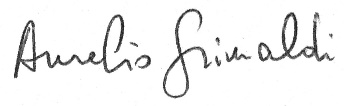 Aurelio Grimaldi